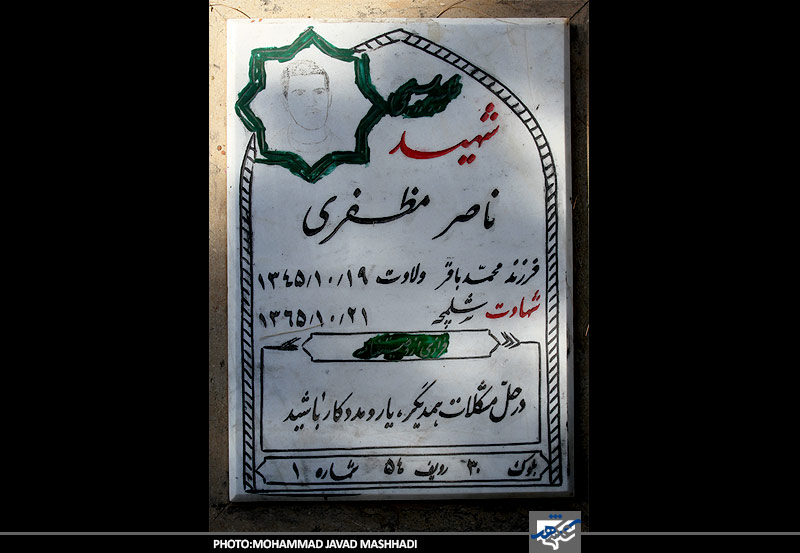 شهید
ناصر مظفری
فرزند محمدباقر ولادت ۱۳۴۵/۱۰/۱۹
شهادت شلمچه ۱۳۶۵/۱۰/۲۱
در حلّ مشکلات همدیگر، یار و مددکار باشید
بلوک ۳۰ ردیف ۵۴ شماره ۱
PHOTO:MOHAMMAD JAVAD MASHHADI